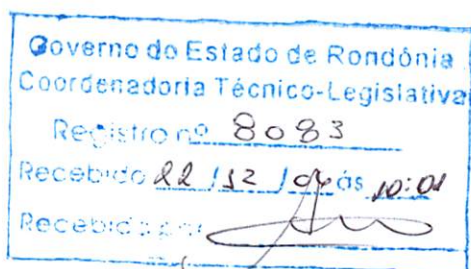 Governo do Estado de Rondônia
Coordenadoria Técnico-Legislativa
Registro nº 8083
Recebido 22 / 12 / às 10:01
Recebido por